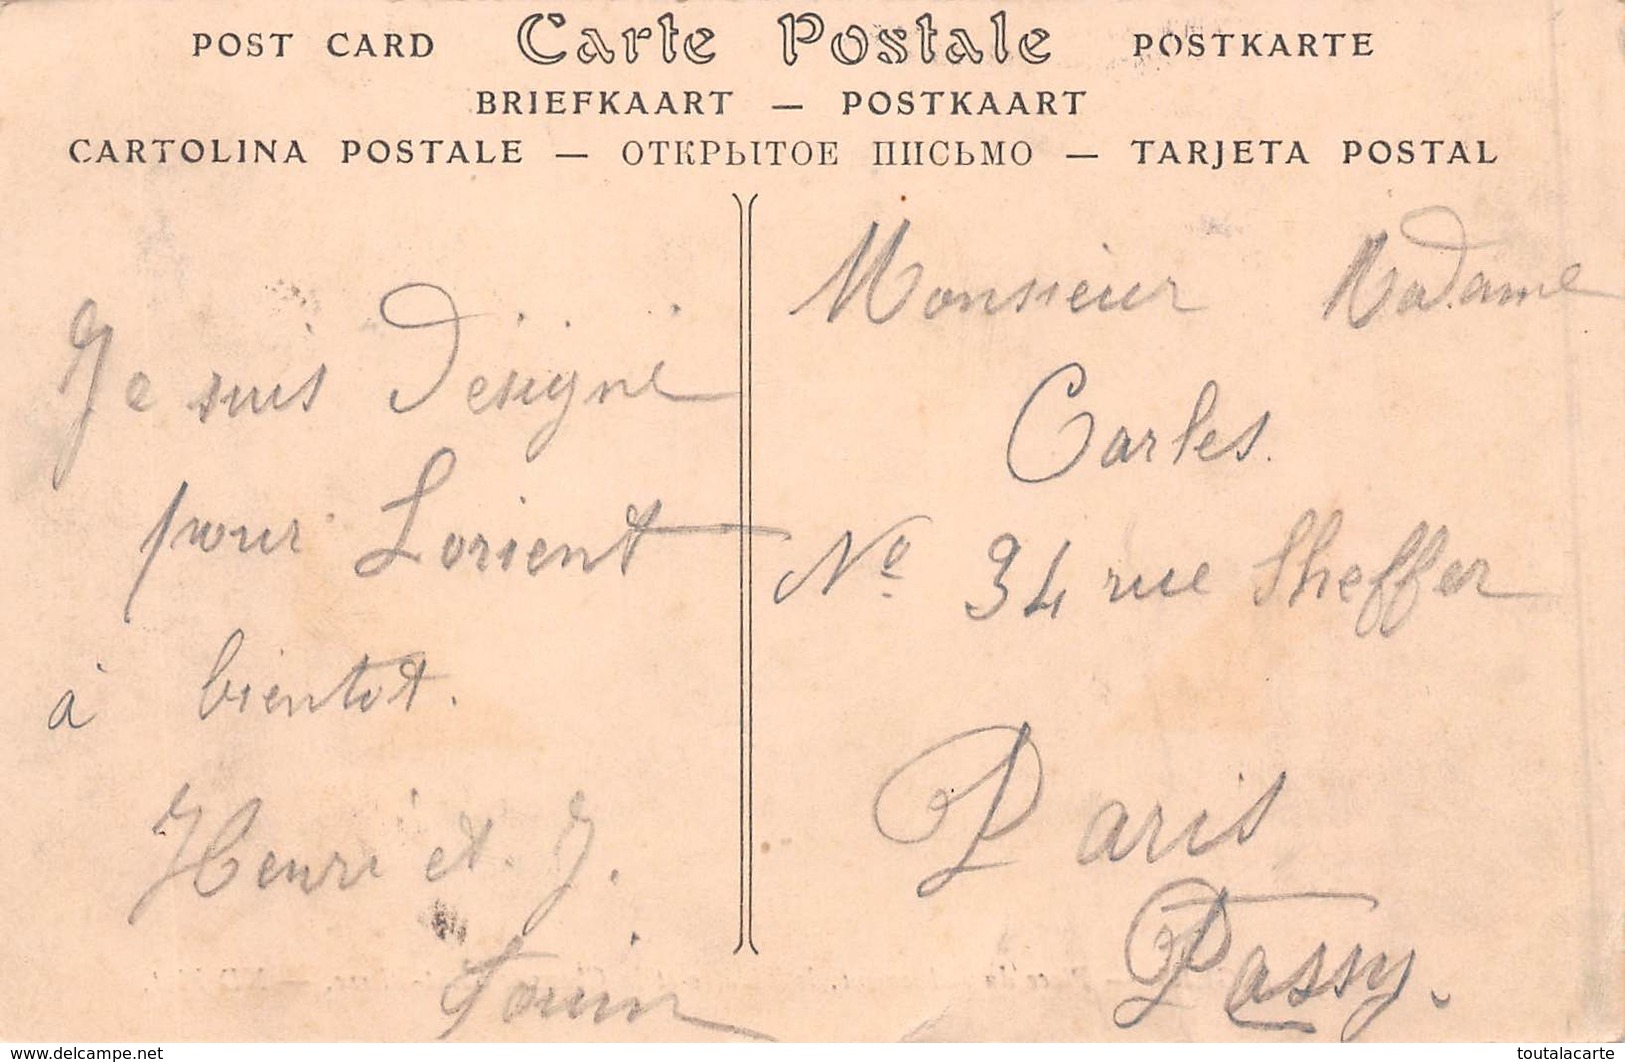 POST CARD Carte Postale POSTKARTE
BRIEFKAART — POSTKAART
CARTOLINA POSTALE — ОТКРЫТОЕ ПИСЬМО — TARJETA POSTAL
Je suis désigné
pour Lorient
à bientot.
Henri et J.
Monsieur Madame
Carles.
Nº 34 rue Sheffer
Paris
Passy.
www.delcampe.net
toutalacarte